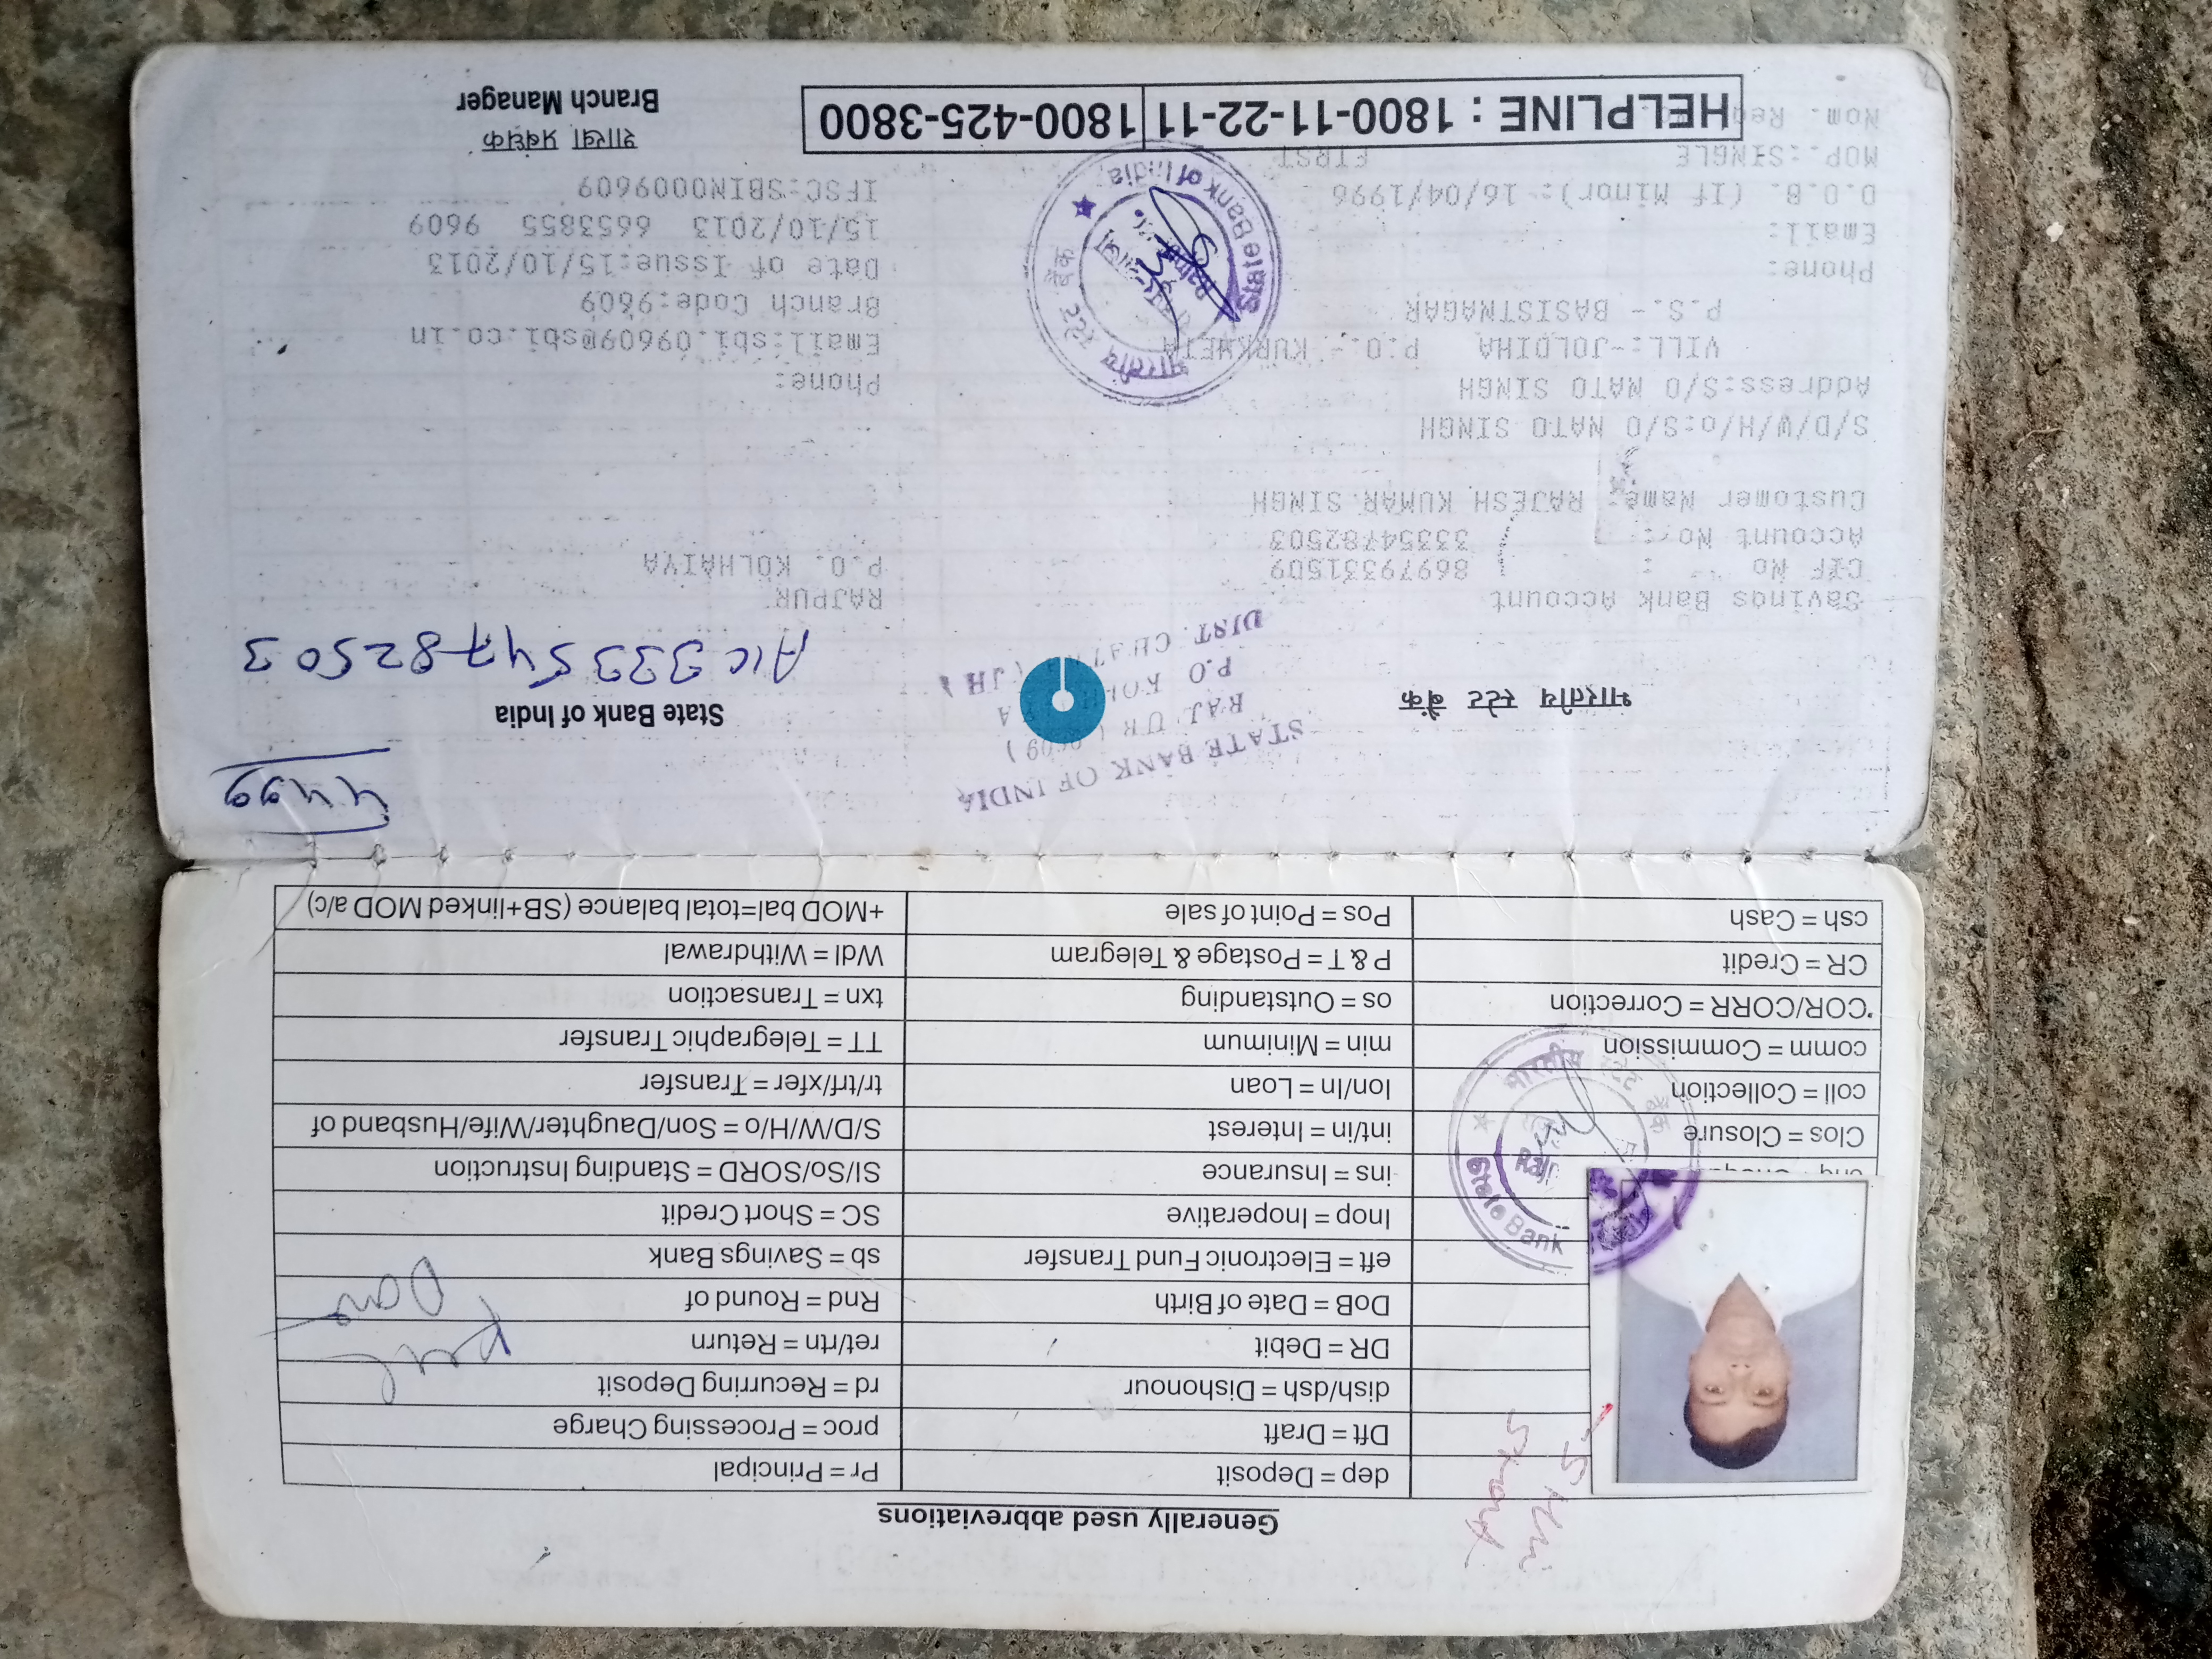 Generally used abbreviations
dep = Deposit
Pr = Principal
Dft = Draft
proc = Processing Charge
dish/dsh = Dishonour
rd = Recurring Deposit
DR = Debit
ret/rtn = Return
DoB = Date of Birth
Rnd = Round of
eft = Electronic Fund Transfer
sb = Savings Bank
Inop = Inoperative
SC = Short Credit
ins = Insurance
SI/So/SORD = Standing Instruction
Clos = Closure
int/in = Interest
S/D/W/H/o = Son/Daughter/Wife/Husband of
coll = Collection
lon/ln = Loan
tr/trf/xfer = Transfer
comm = Commission
min = Minimum
TT = Telegraphic Transfer
*COR/CORR = Correction
os = Outstanding
txn = Transaction
CR = Credit
P & T = Postage & Telegram
Wdl = Withdrawal
csh = Cash
Pos = Point of sale
+MOD bal=total balance (SB+linked MOD a/c)
State Bank
भारतीय स्टेट बैंक
STATE BANK OF INDIA
P.O.
DIST.
भारतीय स्टेट बैंक
State Bank of India
A/C 33354782503
Savings Bank Account
RAJPUR
CIF No : 86979331509
P.O. KOLHAIYA
Account No.: 33354782503
Customer Name: RAJESH KUMAR SINGH
S/D/W/H/o:S/O NATO SINGH
Address:S/O NATO SINGH
Phone:
VILL:-JOLDIHA P.O.- KURKHETA
Email:sbi.09609@sbi.co.in
P.S.- BASISTNAGAR
Branch Code:9609
Phone:
Date of Issue:15/10/2013
Email:
15/10/2013 6653855 9609
D.O.B. (If Minor): 16/04/1996
IFSC:SBIN0009609
MOP.:SINGLE FIRST
भारतीय स्टेट बैंक
State Bank of India
Nom. Reg
शाखा प्रबंधक
HELPLINE : 1800-11-22-11 1800-425-3800
Branch Manager